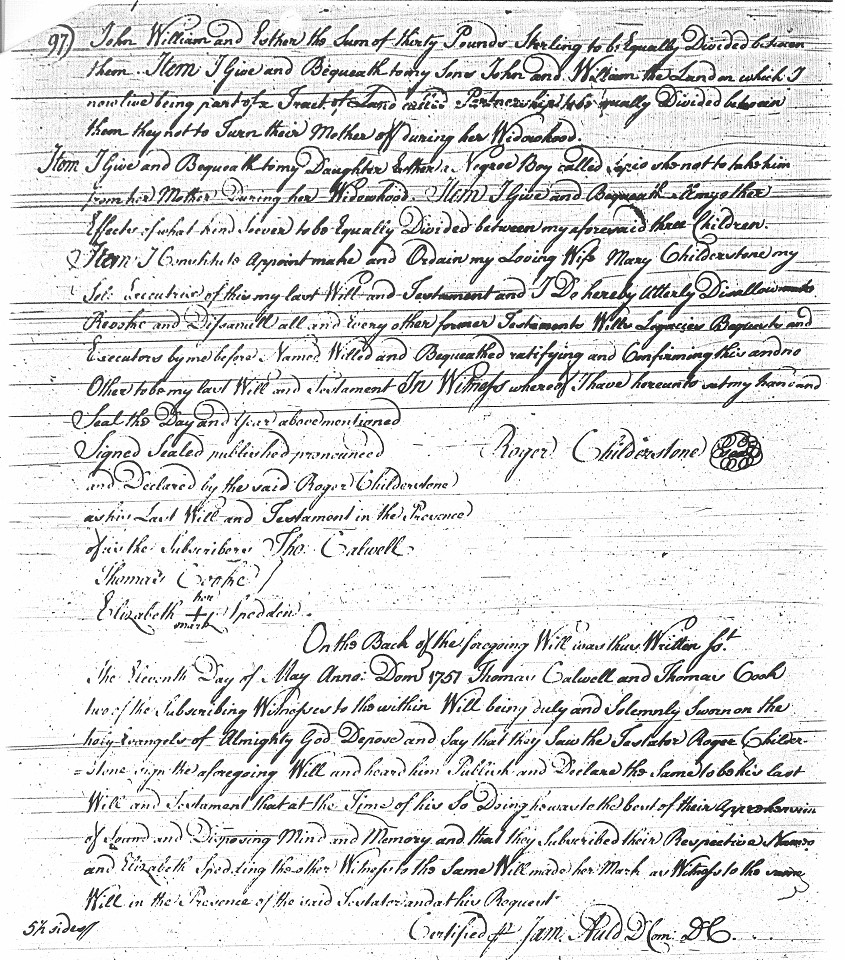 97) John William and Esther the Sum of thirty Pounds Sterling to be Equally Divided between
them. Item I Give and Bequeath to my Sons John and William the Land on which I
now live being part of a Tract of Land called Partnership to be equally Divided between
them they not to Turn their Mother off during her Widowhood.
Item I Give and Bequeath to my Daughter Esther a Negroe Boy called she not to take him
from her Mother During her Widowhood. Item I Give and Bequeath all my other
Effects of what kind soever to be Equally Divided between my aforesaid three Children.
Item I Constitute Appoint make and Ordain my Loving Wife Mary Childerstone my
Sole Executrix of this my last Will and Testament and I Do hereby Utterly Disallow
Revoke and Dissanull all and Every other former Testaments Wills Legacies Bequests and
Executors by me before Named Willed and Bequeathed ratifying and Confirming this and no
Other to be my last Will and Testament In Witness whereof I have hereunto set my hand and
Seal the Day and Year abovementioned
Signed Sealed published pronounced Roger Childerstone Seal
and Declared by the said Roger Childerstone
as his Last Will and Testament in the Presence
of us the Subscribers Tho. Calwell
Thomas Cooke
her
Elizabeth + Spedden.
mark
On the Back of the foregoing Will was thus Written
The Eleventh Day of May Anno: Dom 1751 Thomas Calwell and Thomas Cook
two of the Subscribing Witnesses to the within Will being duly and Solemnly Sworn on the
holy Evangels of Almighty God Depose and Say that they Saw the Testator Roger Childer-
=stone sign the aforegoing Will and heard him Publish and Declare the Same to be his last
Will and Testament that at the Time of his So Doing he was to the best of their Apprehension
of Sound and Disposing Mind and Memory and that they Subscribed their Respective Names
and Elizabeth Spedding the other Witness to the Same Will made her Mark as Witness to the same
Will in the Presence of the said Testator and at his Request
Certified Jam. Auld D Com: DC.